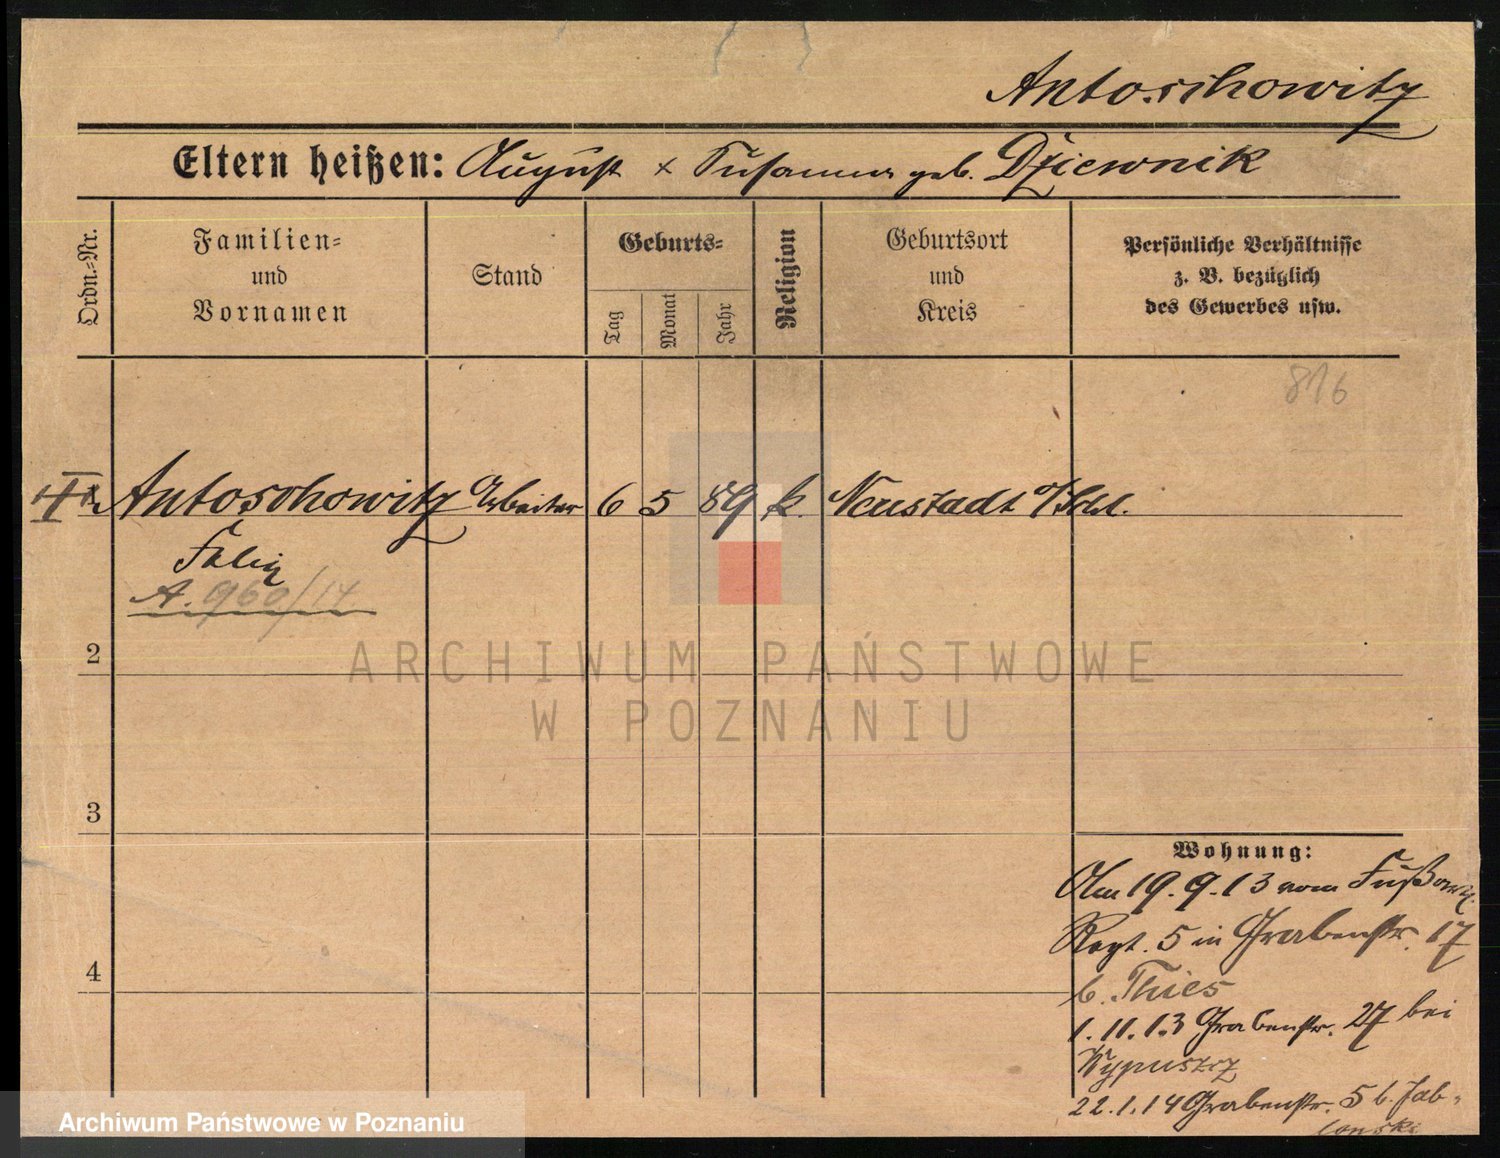 Antoschowitz
Eltern heißen: August + Susanna geb. Dziewnik
Ordn.-Nr.
Familien-
und
Vornamen
Stand
Geburts-
Tag
Monat
Jahr
Religion
Geburtsort
und
Kreis
Persönliche Verhältnisse
z. B. bezüglich
des Gewerbes usw.
816
Antoschowitz Arbeiter 6 5 89 k. Neustadt o/Schl.
Felix
A. 960/14
2
3
4
ARCHIWUM PAŃSTWOWE
W POZNANIU
Wohnung:
Am 19.9.13 vom
Regt. 5 in Grabenstr. 17
b. Thies
1.11.13 Grabenstr. 27 bei
Wypuszcz
22.1.14 Grabenstr. 5 b. Jab-
lonski
Archiwum Państwowe w Poznaniu